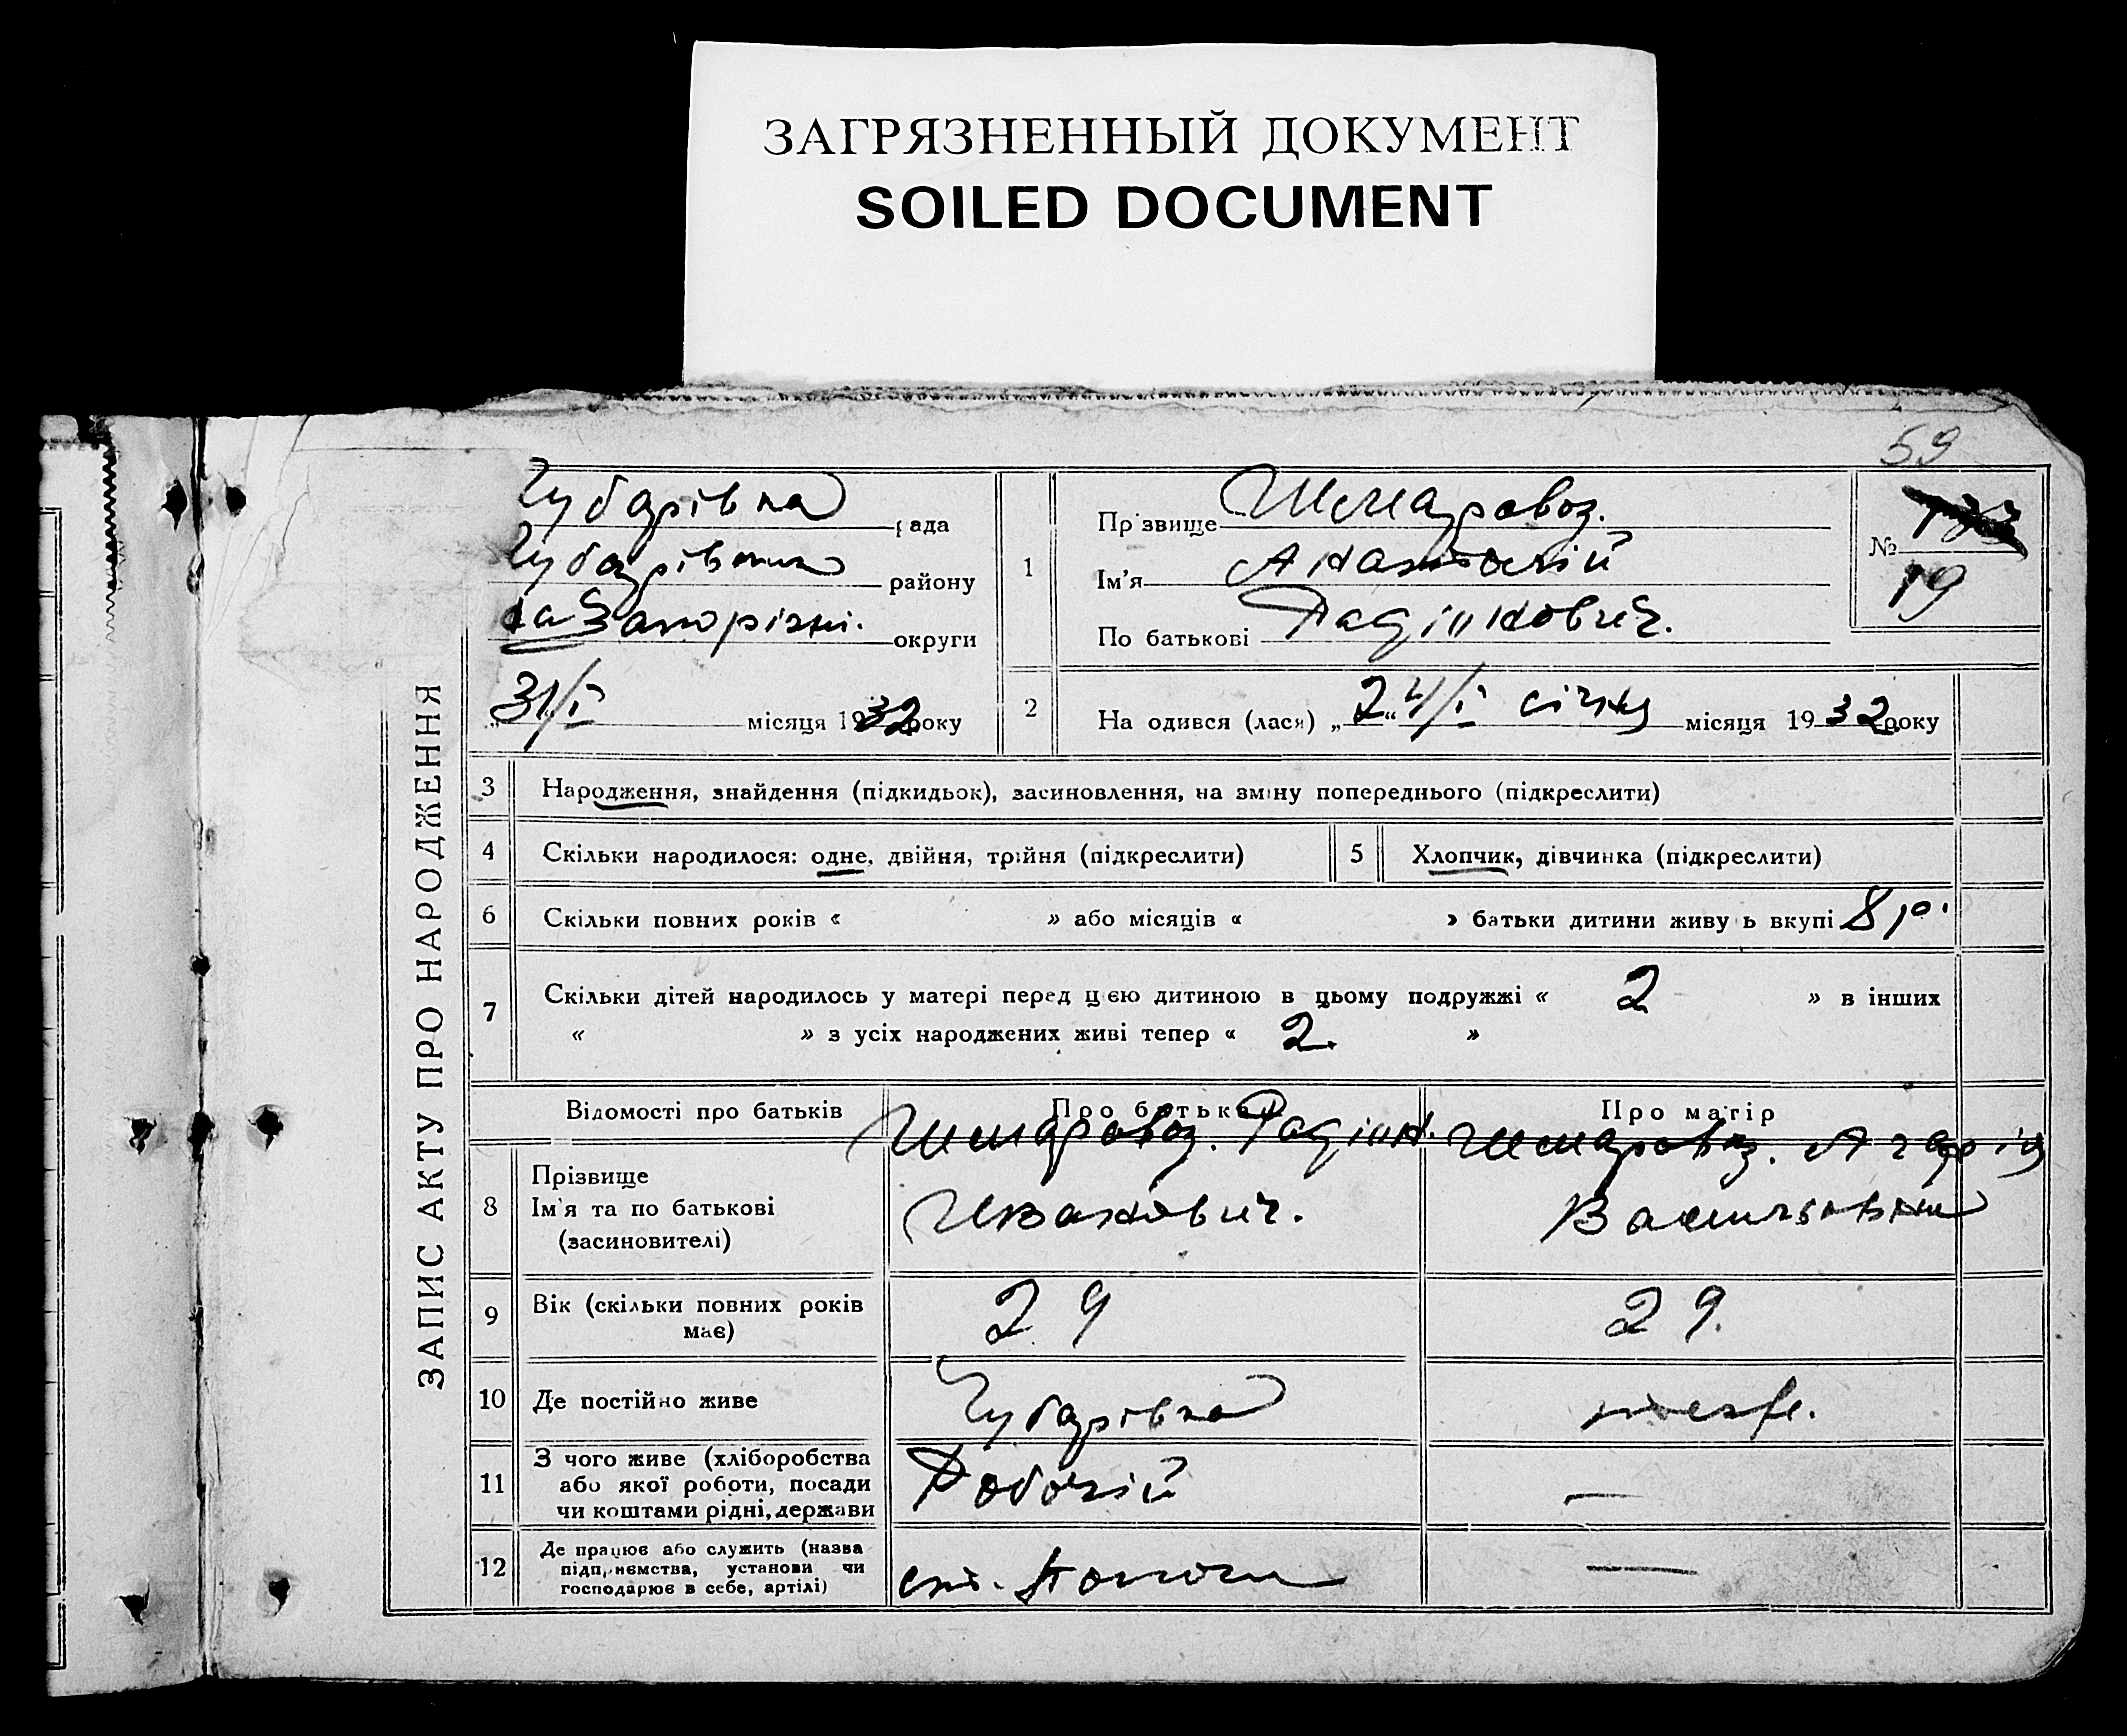 ЗАГРЯЗНЕННЫЙ ДОКУМЕНТ
SOILED DOCUMENT
59
ЗАПИС АКТУ ПРО НАРОДЖЕННЯ
Чубарівка рада
району
округи
31/I місяця 1932 року
1
Прізвище Шмаровоз.
Ім'я Анатолій
По батькові Радіінович.
№
19
2
На одився (лася) „24/I січня місяця 1932 року
3 Народження, знайдення (підкидьок), засиновлення, на зміну попереднього (підкреслити)
4 Скільки народилося: одне, двійня, трійня (підкреслити)
5 Хлопчик, дівчинка (підкреслити)
6 Скільки повних років « » або місяців « » батьки дитини живу ь вкупі 8 р.
7 Скільки дітей народилось у матері перед цією дитиною в цьому подружжі « 2 » в інших
« » з усіх народжених живі тепер « 2. »
Відомості про батьків
Про батька
Про матір
8 Прізвище
Ім'я та по батькові
(засиновителі)
Шмаровоз.
Иванович.
Шмаровоз.
9 Вік (скільки повних років
має)
29
29.
10 Де постійно живе
Чубарівка
11 З чого живе (хліборобства
або якої роботи, посади
чи коштами рідні, держави
Робочій
—
12 Де працює або служить (назва
підприємства, установи чи
господарює в себе, артілі)
—